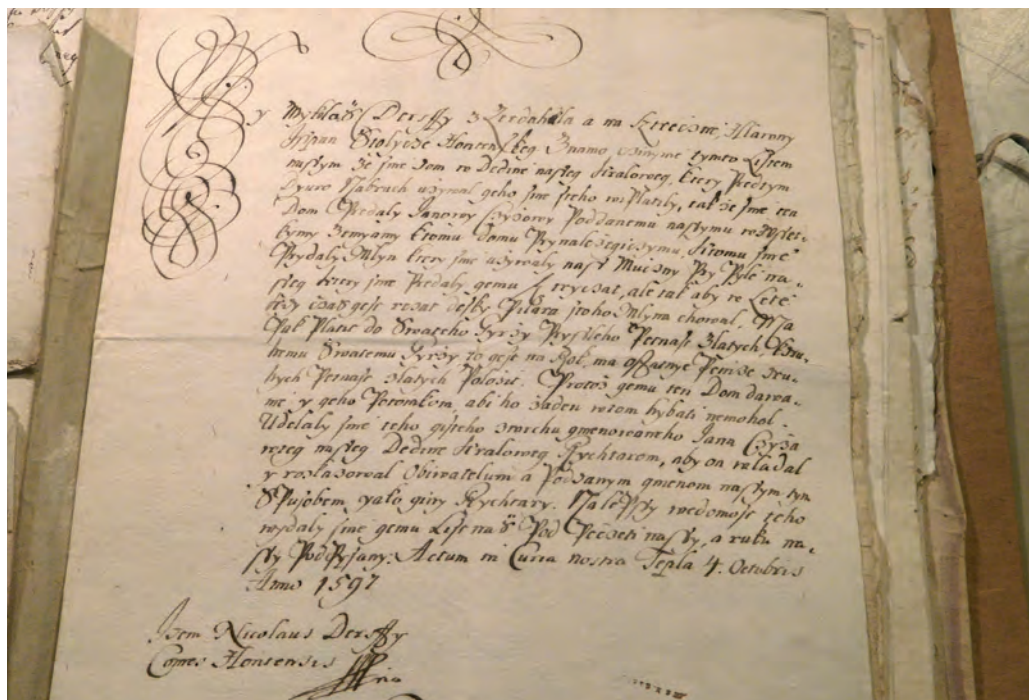 y Myklass Dersffy z Zerdahela a na Strečzne, Hlavny
Isspan Stolycze Hontenskeg Znamo czinyme tymto Listem
nassym že sme Dom w Dedine nasseg Kraloweg, ktery Predtym
Dyuro Nabrach užywal geho sme jteho wiplatily, tak že sme ten
Dom Predaly Janowy Czyžowy Poddanemu nassymu ze wsset-
kymy Zemyamy ktomu Domu Prynaležegiczymu, ktomu sme
Prydaly Mlyn ktery sme užywaly nass Mučzny Pry Pyle na-
sseg ktery sme Predaly gemu, ale tak aby w Lete
wžy czass geje rezat desky Pilara jtoho Mlyna chowal. Ma
Pak Platit do Swateho Gyržy Prystleho Petnast Zlatych, kdru-
hemu Swatemu Gyržy to gest na Rok, ma ostatnych dru-
hych Petnast Zlatych Položit. Protož gemu ten Dom dawa-
me y geho Potomkom, abi ho žaden wtom hybati nemohol.
Udelaly sme teho gisteho zwrchu gmenowaneho Jana Czyža
wteg nasseg Dedine Kraloweg Rychtarom, aby on wladal
y rozkazowal Obiwatelum a Poddanym gmenom nassym tym
Spusobem yako giny Rychtary. Na lepssy wedomost teho
wydaly sme gemu List nass Pod Pečzeti nassy, a ruku na-
ssy Podpysany. Actum in Curia nostra Tepla 4. Octobris
Anno 1597
Idem Nicolaus Dersffy
Comes Hontensis